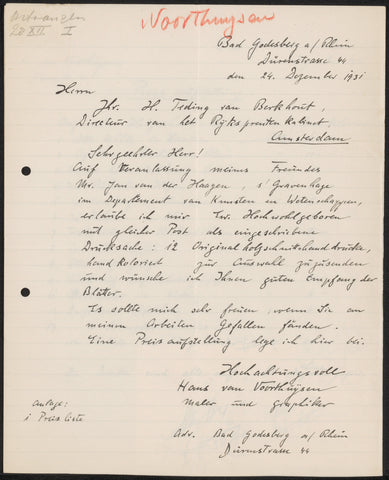 Voorthuysen
Ontvangen
28 XII. I
Bad Godesberg a/Rhein
Dürenstrasse 44
den 24. Dezember 1931
Herrn
Jhr. H. Teding van Berkhout,
Directeur van het Rijksprentenkabinet.
Amsterdam
Sehr geehrter Herr!
Auf Veranlassung meines Freundes
Mr. Jan van der Haagen, s'Gravenhage
im Departement van Kunsten en Wetenschappen,
erlaube ich mir Ew. Hochwohlgeboren
mit gleicher Post als eingeschriebene
Drucksache: 12 Original holzschnitthanddrucke,
handkoloriert zur Auswahl zuzusenden
und wünsche ich Ihnen guten Empfang der
Blätter.
Es sollte mich sehr freuen, wenn Sie an
meinen Arbeiten Gefallen fänden.
Eine Preisaufstellung lege ich hier bei.
Hochachtungsvoll
Hans van Voorthuÿsen
maler und graphiker
Anlage:
1 Preisliste
Adr. Bad Godesberg a/Rhein
Dürenstrasse 44